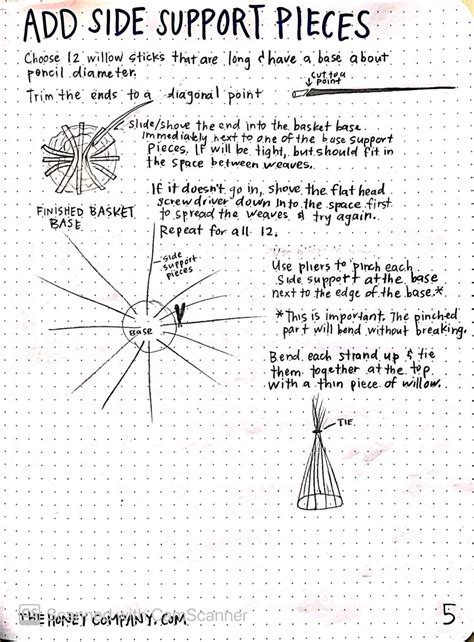 ADD SIDE SUPPORT PIECES
Choose 12 willow sticks that are long & have a base about
pencil diameter.
Trim the ends to a diagonal point
cut to a
point
Slide/shove the end into the basket base
immediately next to one of the base support
pieces. It will be tight, but should fit in
the space between weaves.
If it doesn't go in, shove the flat head
screwdriver down into the space first
to spread the weaves & try again.
Repeat for all 12.
FINISHED BASKET
BASE
side
support
pieces
Base
Use pliers to pinch each
side support at the base
next to the edge of the base.*
*This is important. The pinched
part will bend without breaking.
Bend each strand up & tie
them together at the top
with a thin piece of willow.
TIE
CS Scanned with CamScanner
THEHONEYCOMPANY.COM
5